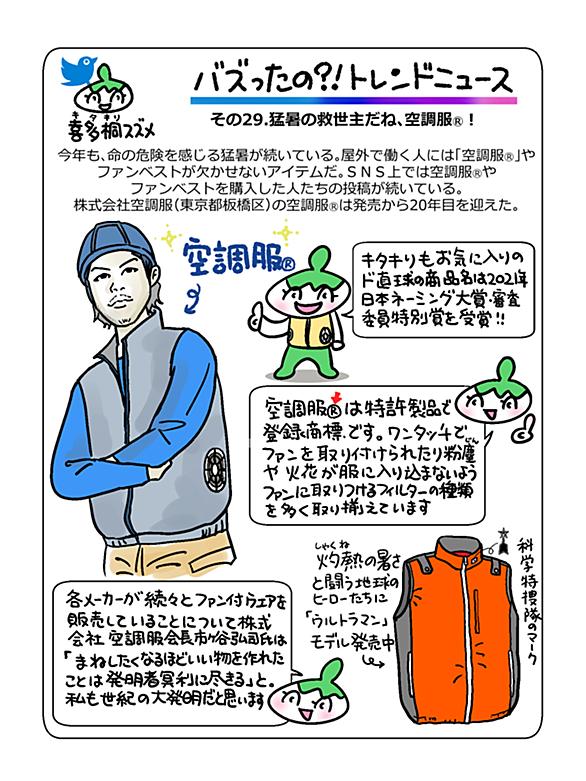 バズったの?!トレンドニュース
キタキリ
喜多桐スズメ
その29.猛暑の救世主だね、空調服®!
今年も、命の危険を感じる猛暑が続いている。屋外で働く人には「空調服®」や
ファンベストが欠かせないアイテムだ。SNS上では空調服®や
ファンベストを購入した人たちの投稿が続いている。
株式会社空調服(東京都板橋区)の空調服®は発売から20年目を迎えた。
空調服®
キタキリもお気に入りの
ド直球の商品名は2021年
日本ネーミング大賞・審査
委員特別賞を受賞!!
空調服®は特許製品で
登録商標です。ワンタッチで
ファンを取り付けられたり粉塵
じん
や火花が服に入り込まないよう
ファンに取りつけるフィルターの種類
を多く取り揃えています
しゃくねつ
灼熱の暑さ
と闘う地球の
ヒーローたちに
「ウルトラマン」
モデル発売中
科学特捜隊のマーク
各メーカーが続々とファン付ウェアを
販売していることについて株式
会社空調服会長市ヶ谷弘司氏は
「まねしたくなるほどいい物を作れた
ことは発明者冥利に尽きる」と。
私も世紀の大発明だと思います